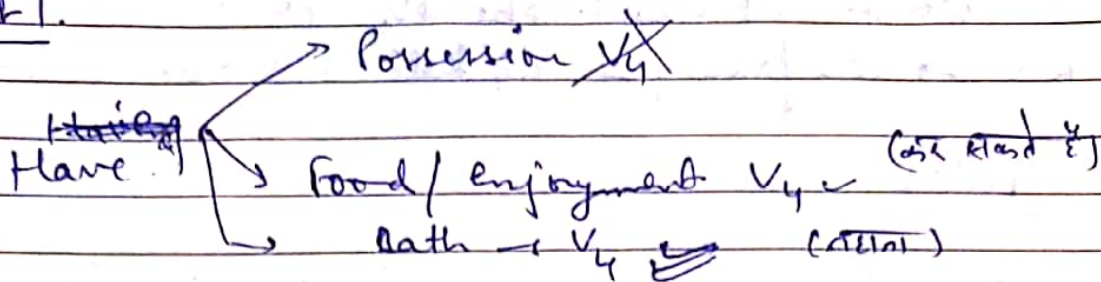 Possession V4
Have
Food / enjoyment V4 ✓ (कर सकते हैं)
Bath → V4 (नहाना)